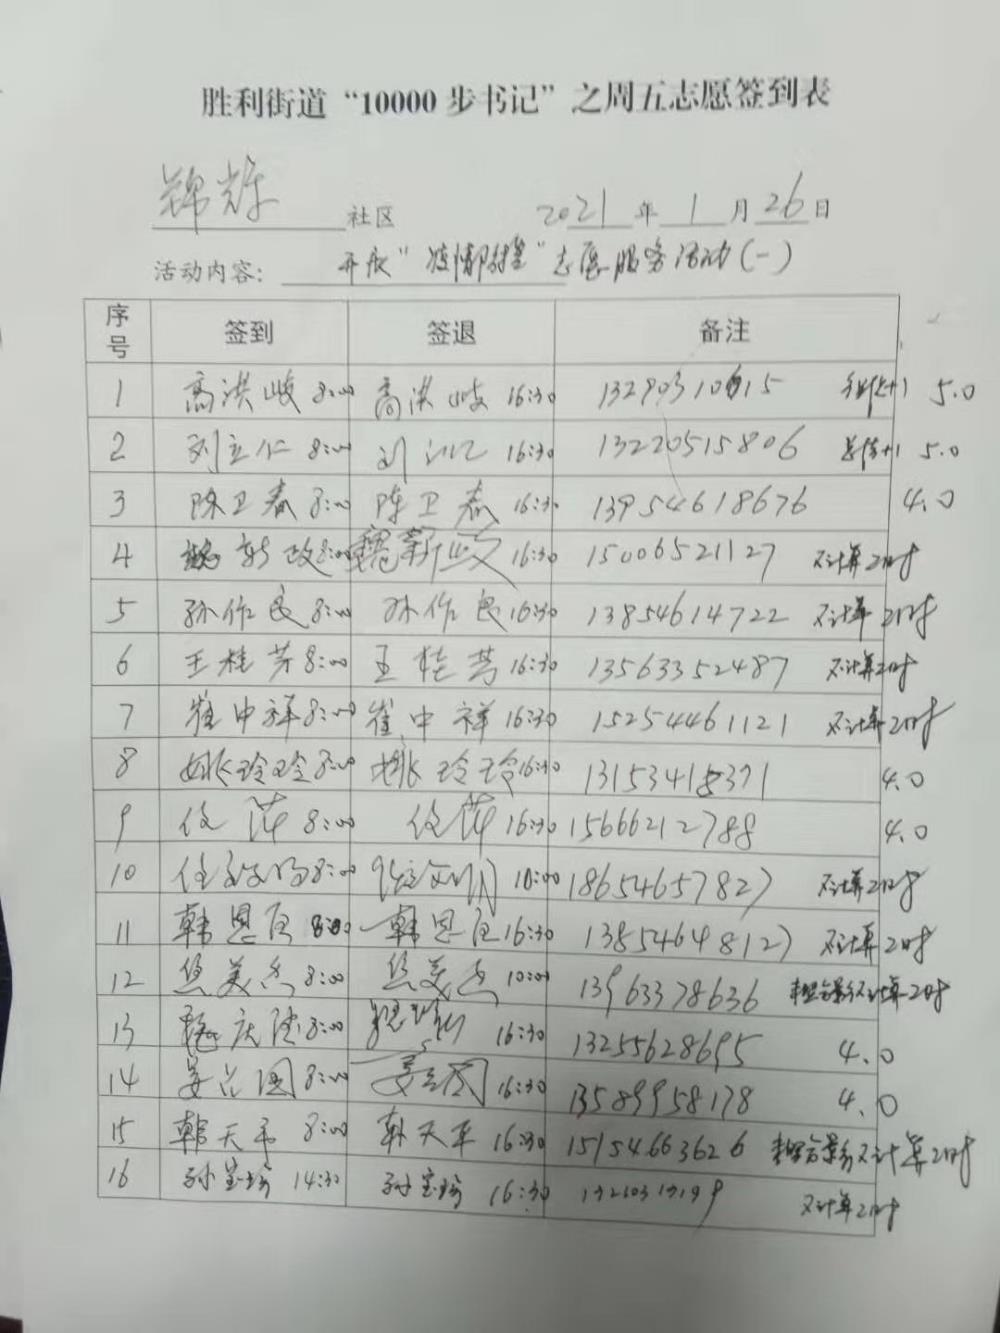 胜利街道“10000步书记”之周五志愿签到表
锦苑 社区 2021年1月26日
活动内容：开展“疫情防控”志愿服务活动（一）
序号 签到 签退 备注
1 高洪岐 8:00 高洪岐 16:30 5.0
2 刘立仁 8:00 刘立仁 16:30 13220515806 5.0
3 陈卫春 8:00 陈卫春 16:30 13954618676 4.0
4 魏新政 8:00 魏新政 16:30 15006521127 不计算2小时
5 孙作良 8:00 孙作良 16:30 13854614722 不计算2小时
6 王桂芳 8:00 王桂芳 16:30 13563352487 不计算2小时
7 崔中祥 8:00 崔中祥 16:30 15254461121 不计算2小时
8 姚玲玲 8:00 姚玲玲 16:30 4.0
9 萍 8:00 萍 16:30 15666212788 4.0
10 任 8:00 任 10:00 18654657827 不计算2小时
11 韩恩 8:00 韩恩 16:30 13854648127 不计算2小时
12 美 8:00 美 10:00 13963378636 不计算2小时
13 庆 8:00 16:30 13255628695 4.0
14 姜 国 8:00 姜 国 16:30 13589958178 4.0
15 韩天平 8:00 韩天平 16:30 15154663626 不计算2小时
16 孙宝 14:30 孙宝 16:30 不计算2小时